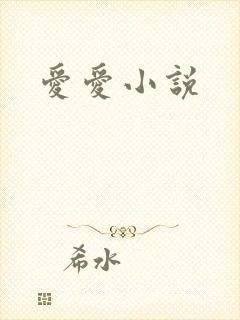 愛愛小説
希水